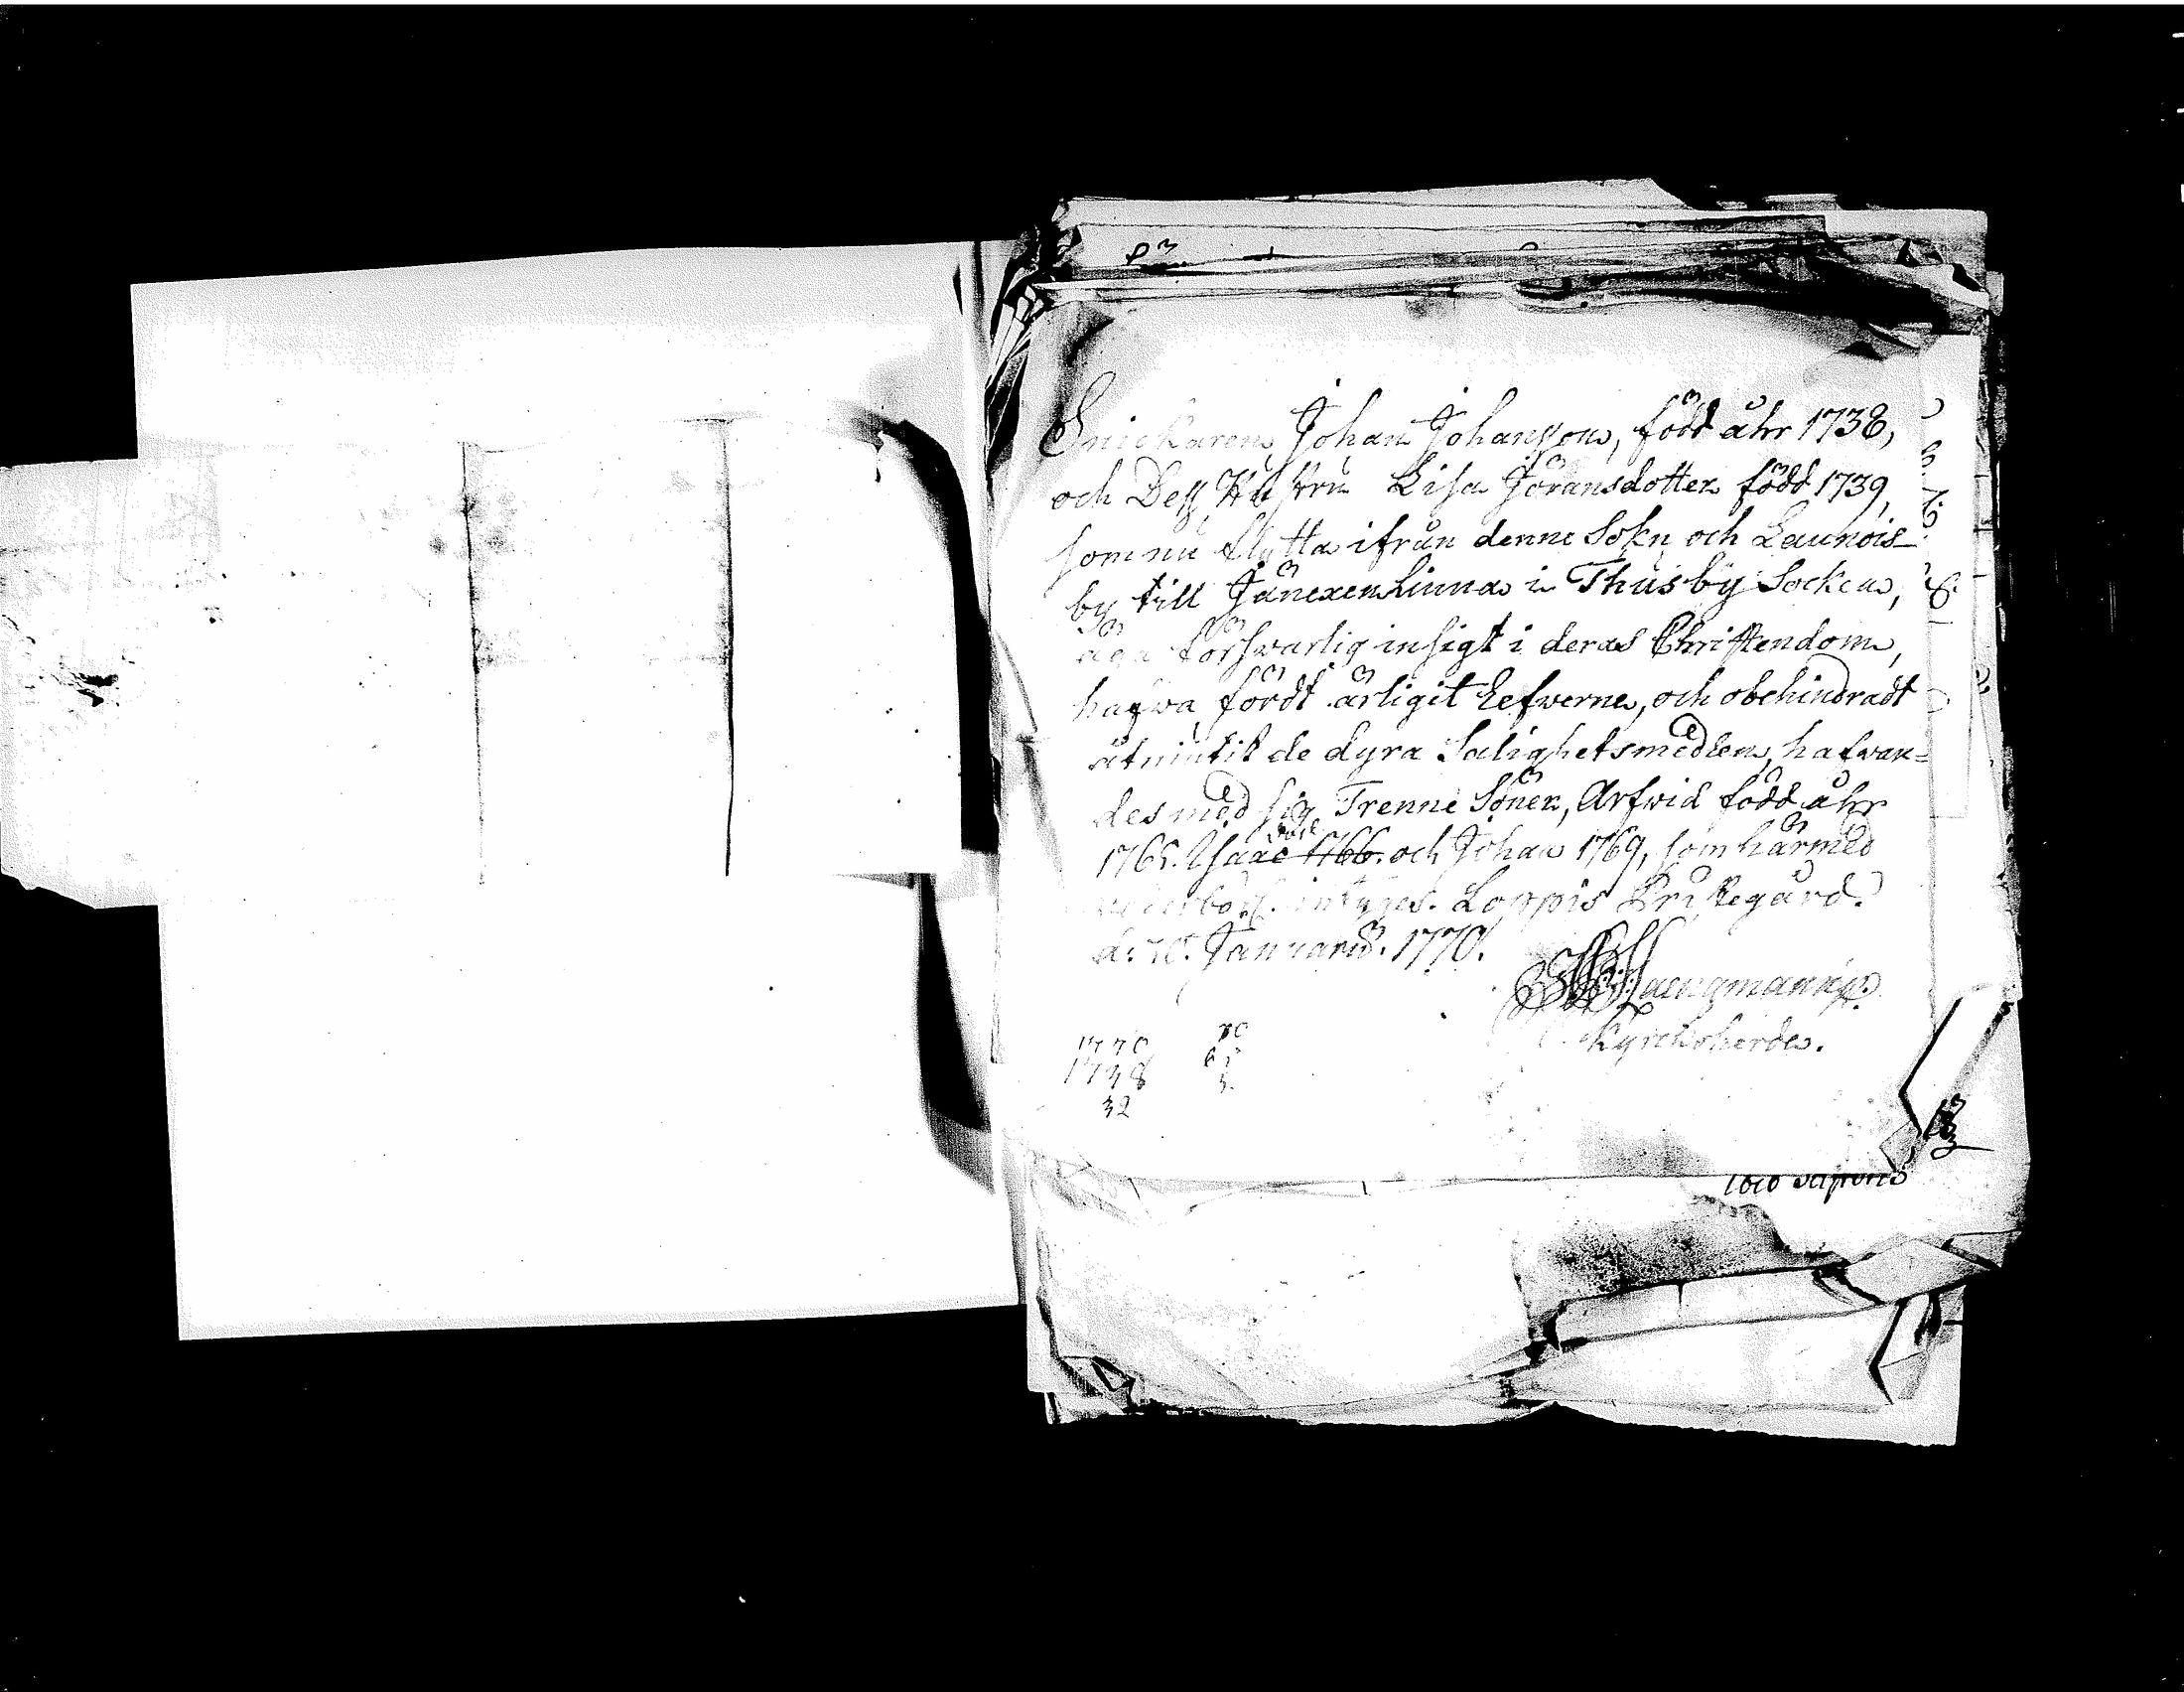 Snickaren Johan Johansson, född åhr 1738,
och Dess Hustru Lisa Jöransdotter född 1739,
som nu flytta ifrån denne Sokn och Launois
by till Jänexenlinna i Thusby Socken,
äga försvarlig insigt i deras Christendom,
hafwa fördt ärligit Lefwerne, och obehindradt
åtniutit de dyra Salighetsmedlen, hafwan=
des med sig Trenne Söner, Arfwid född åhr
1765. Isaac 1766. och Johan 1769, som härmed
intyges. Loppis Prästegård.
d. Januarii. 1770.
Kyrckoherde.
1770
1738
32
70
65
5.
loco